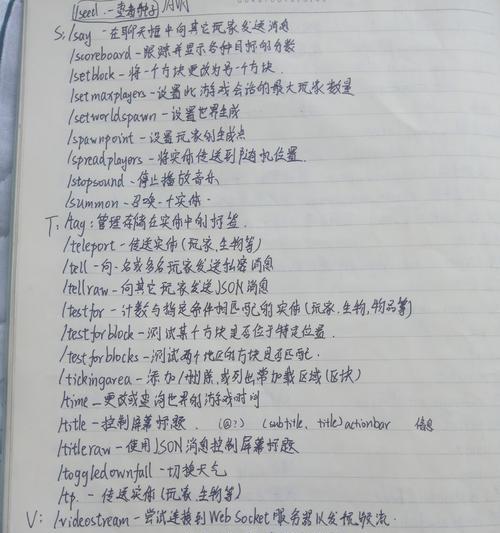 /seed. - 查看种子
S: /say - 在聊天框中向其它玩家发送消息
/scoreboard - 跟踪并显示各种目标的分数
/setblock - 将一个方块更改为另一个方块.
/setmaxplayers - 设置此游戏会话的最大玩家数量
/setworldspawn - 设置世界生成
/spawnpoint - 设置玩家的生成点
/spreadplayers - 将实体传送到随机位置.
/stopsound - 停止播放音乐
/summon - 召唤一个实体.
T: /tag: 管理存储在实体中的标签
/teleport - 传送实体(玩家.生物等)
/tell - 向一名或多名玩家发送私密消息
/tellraw - 向其它玩家发送JSON消息
/testfor - 计数与指定条件相匹配的实体(玩家.生物,物品等)
/testforblock - 测试某个方块是否位于特定位置.
/testforblocks - 测试两个地区的方块是否匹配.
/tickingarea - 添加/删除或列出常加载区域(区块)
/time - 更改或查询世界的游戏时间
/title - 控制屏幕标题. (@?) (subtitle, title)actionbar 信息
/titleraw - 使用JSON消息控制屏幕标题
/toggledownfall - 切换天气
/tp. - 传送实体(玩家.生物等)
V: /videostream - 尝试连接到WebSocket服务器以发视频流.